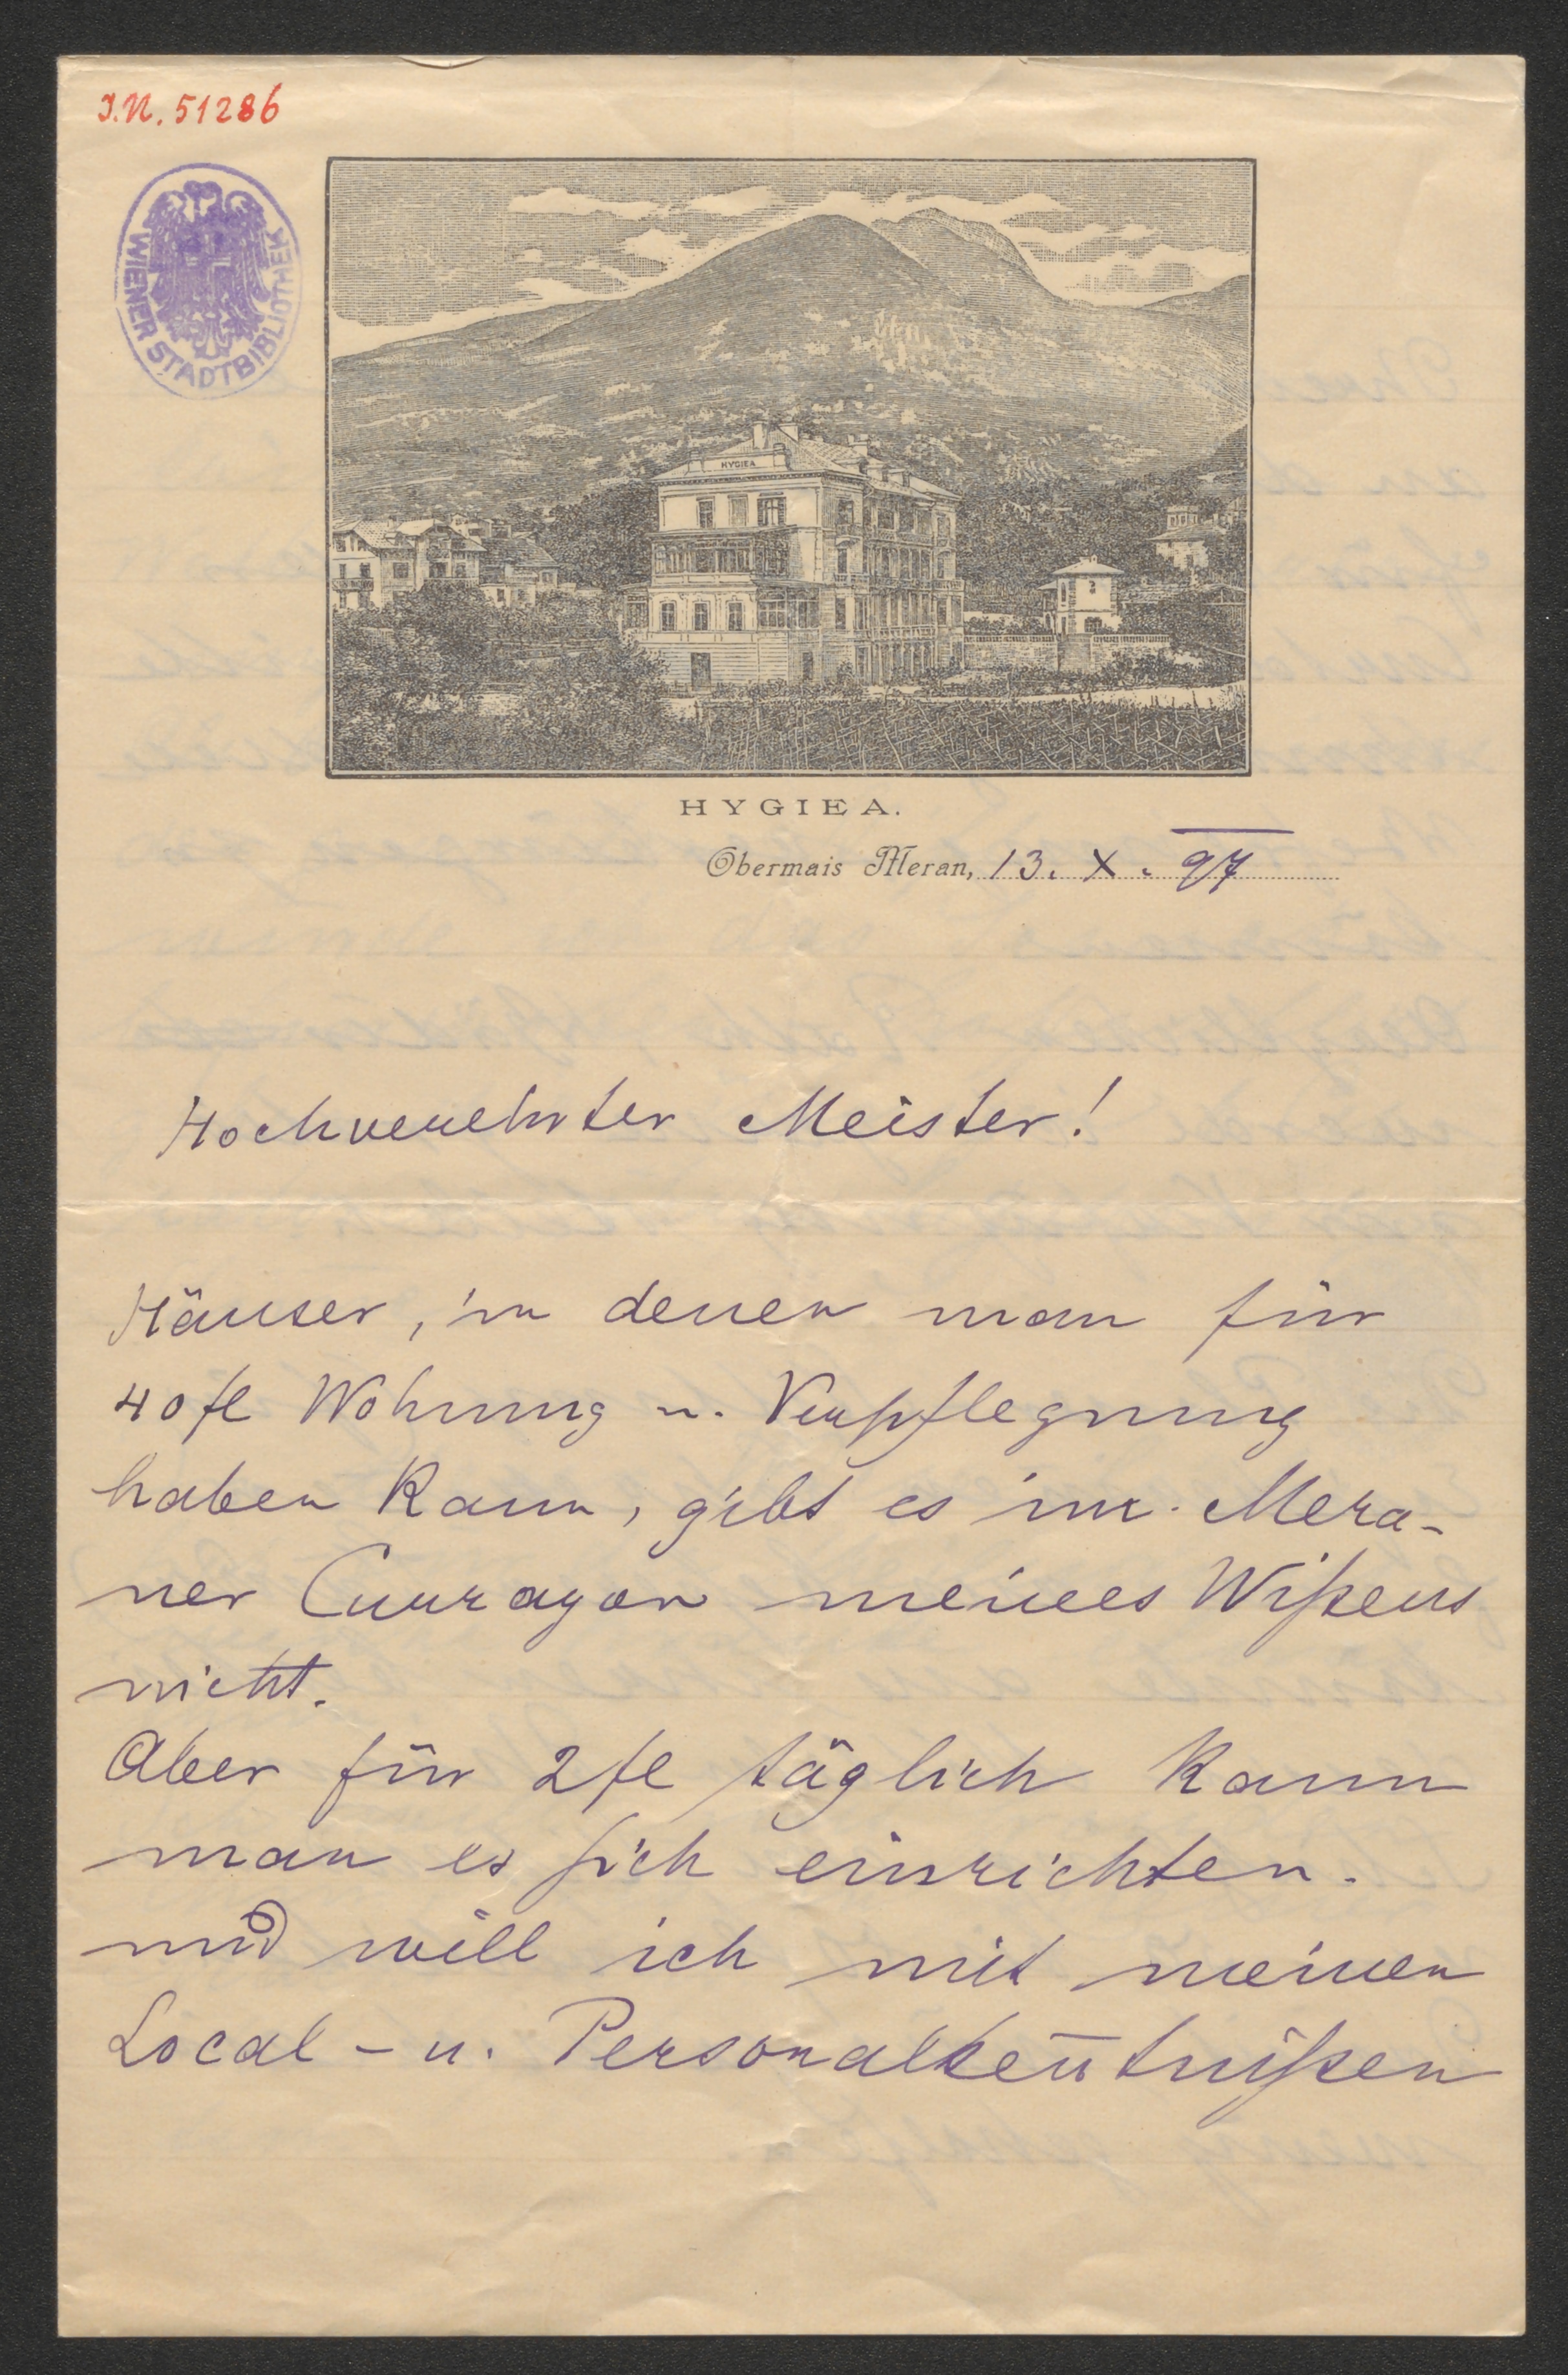 J.N. 51286
WIENER STADTBIBLIOTHEK
HYGIEA
HYGIEA.
Obermais Meran, 13. X. 97
Hochverehrter Meister!
Häuser, in denen man für
40 fl Wohnung u. Verpflegung
haben kann, gibt es im Mera-
ner Currayon meines Wißens
nicht.
Aber für 2 fl täglich kann
man es sich einrichten.
und will ich mit meinen
Local- u. Personalkeñtnißen